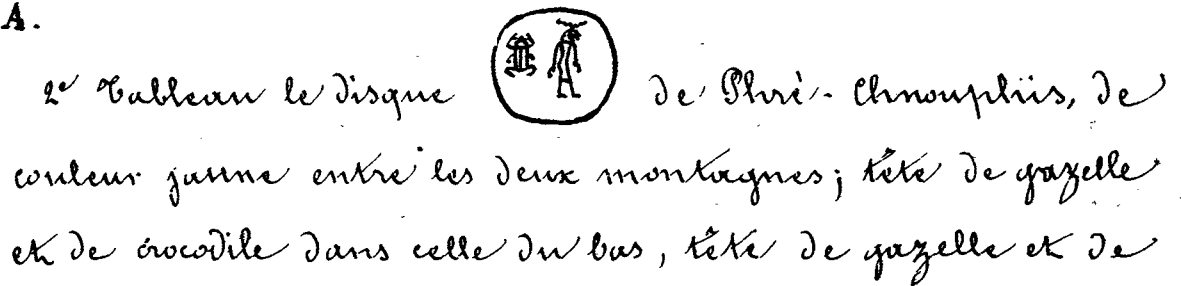 A.
2e Tableau le disque de Phré-Chnouphis, de
couleur jaune entre les deux montagnes; tête de gazelle
et de crocodile dans celle du bas, tête de gazelle et de